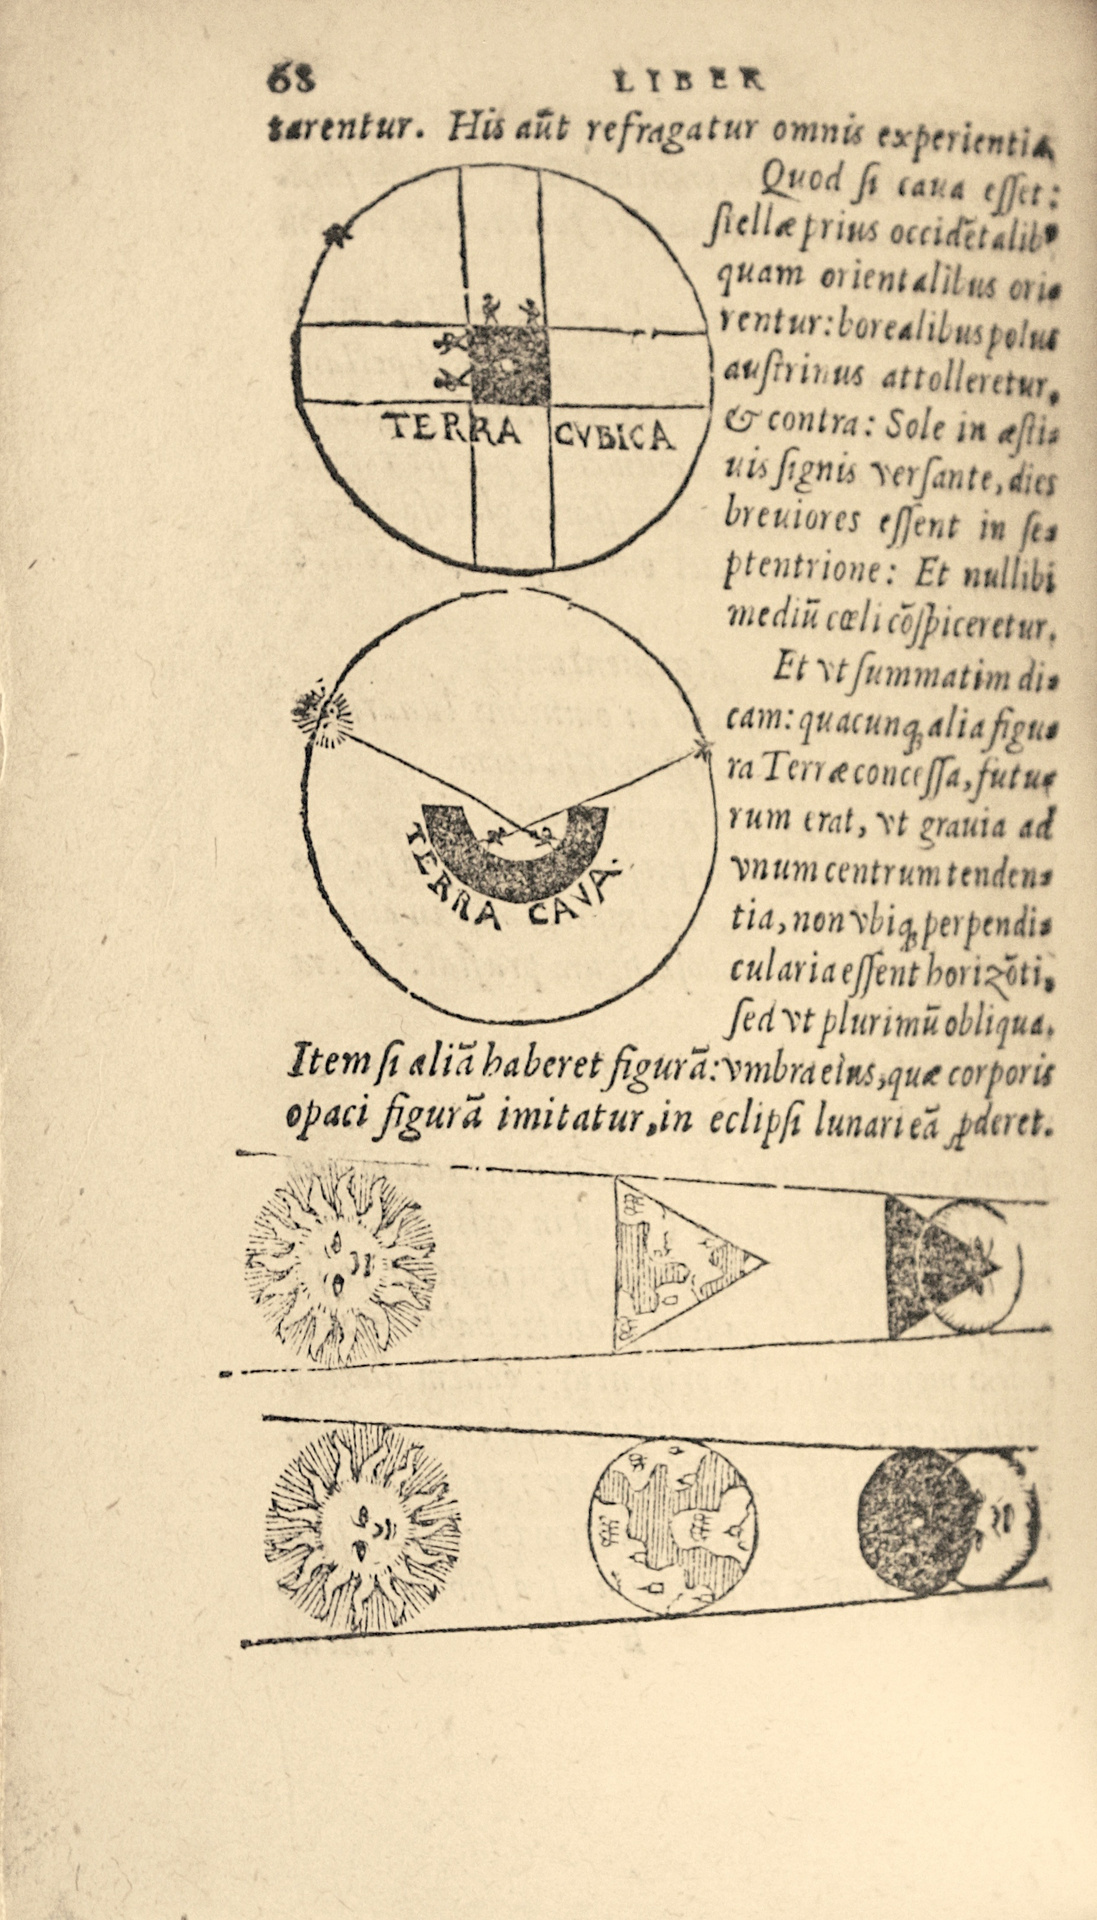 68 LIBER
tarentur. His aūt refragatur omnis experientia
Quod ſi caua eſſet:
ſtellæ prius occidētalibꝰ
quam orientalibus orie
rentur: borealibus polus
auſtrinus attolleretur,
& contra: Sole in æſti-
uis ſignis verſante, dies
breuiores eſſent in ſe-
ptentrione: Et nullibi
mediū cœli cōſpiceretur.
TERRA CVBICA
Et vt ſummatim di-
cam: quacunqꝫ alia figu-
ra Terræ conceſſa, futu-
rum erat, vt grauia ad
vnum centrum tenden-
tia, non vbiqꝫ perpendi-
cularia eſſent horizōti,
ſed vt plurimū obliqua.
TERRA CAVA.
Item ſi aliā haberet figurā: vmbra eius, quæ corporis
opaci figurā imitatur, in eclipſi lunari eā ꝓderet.